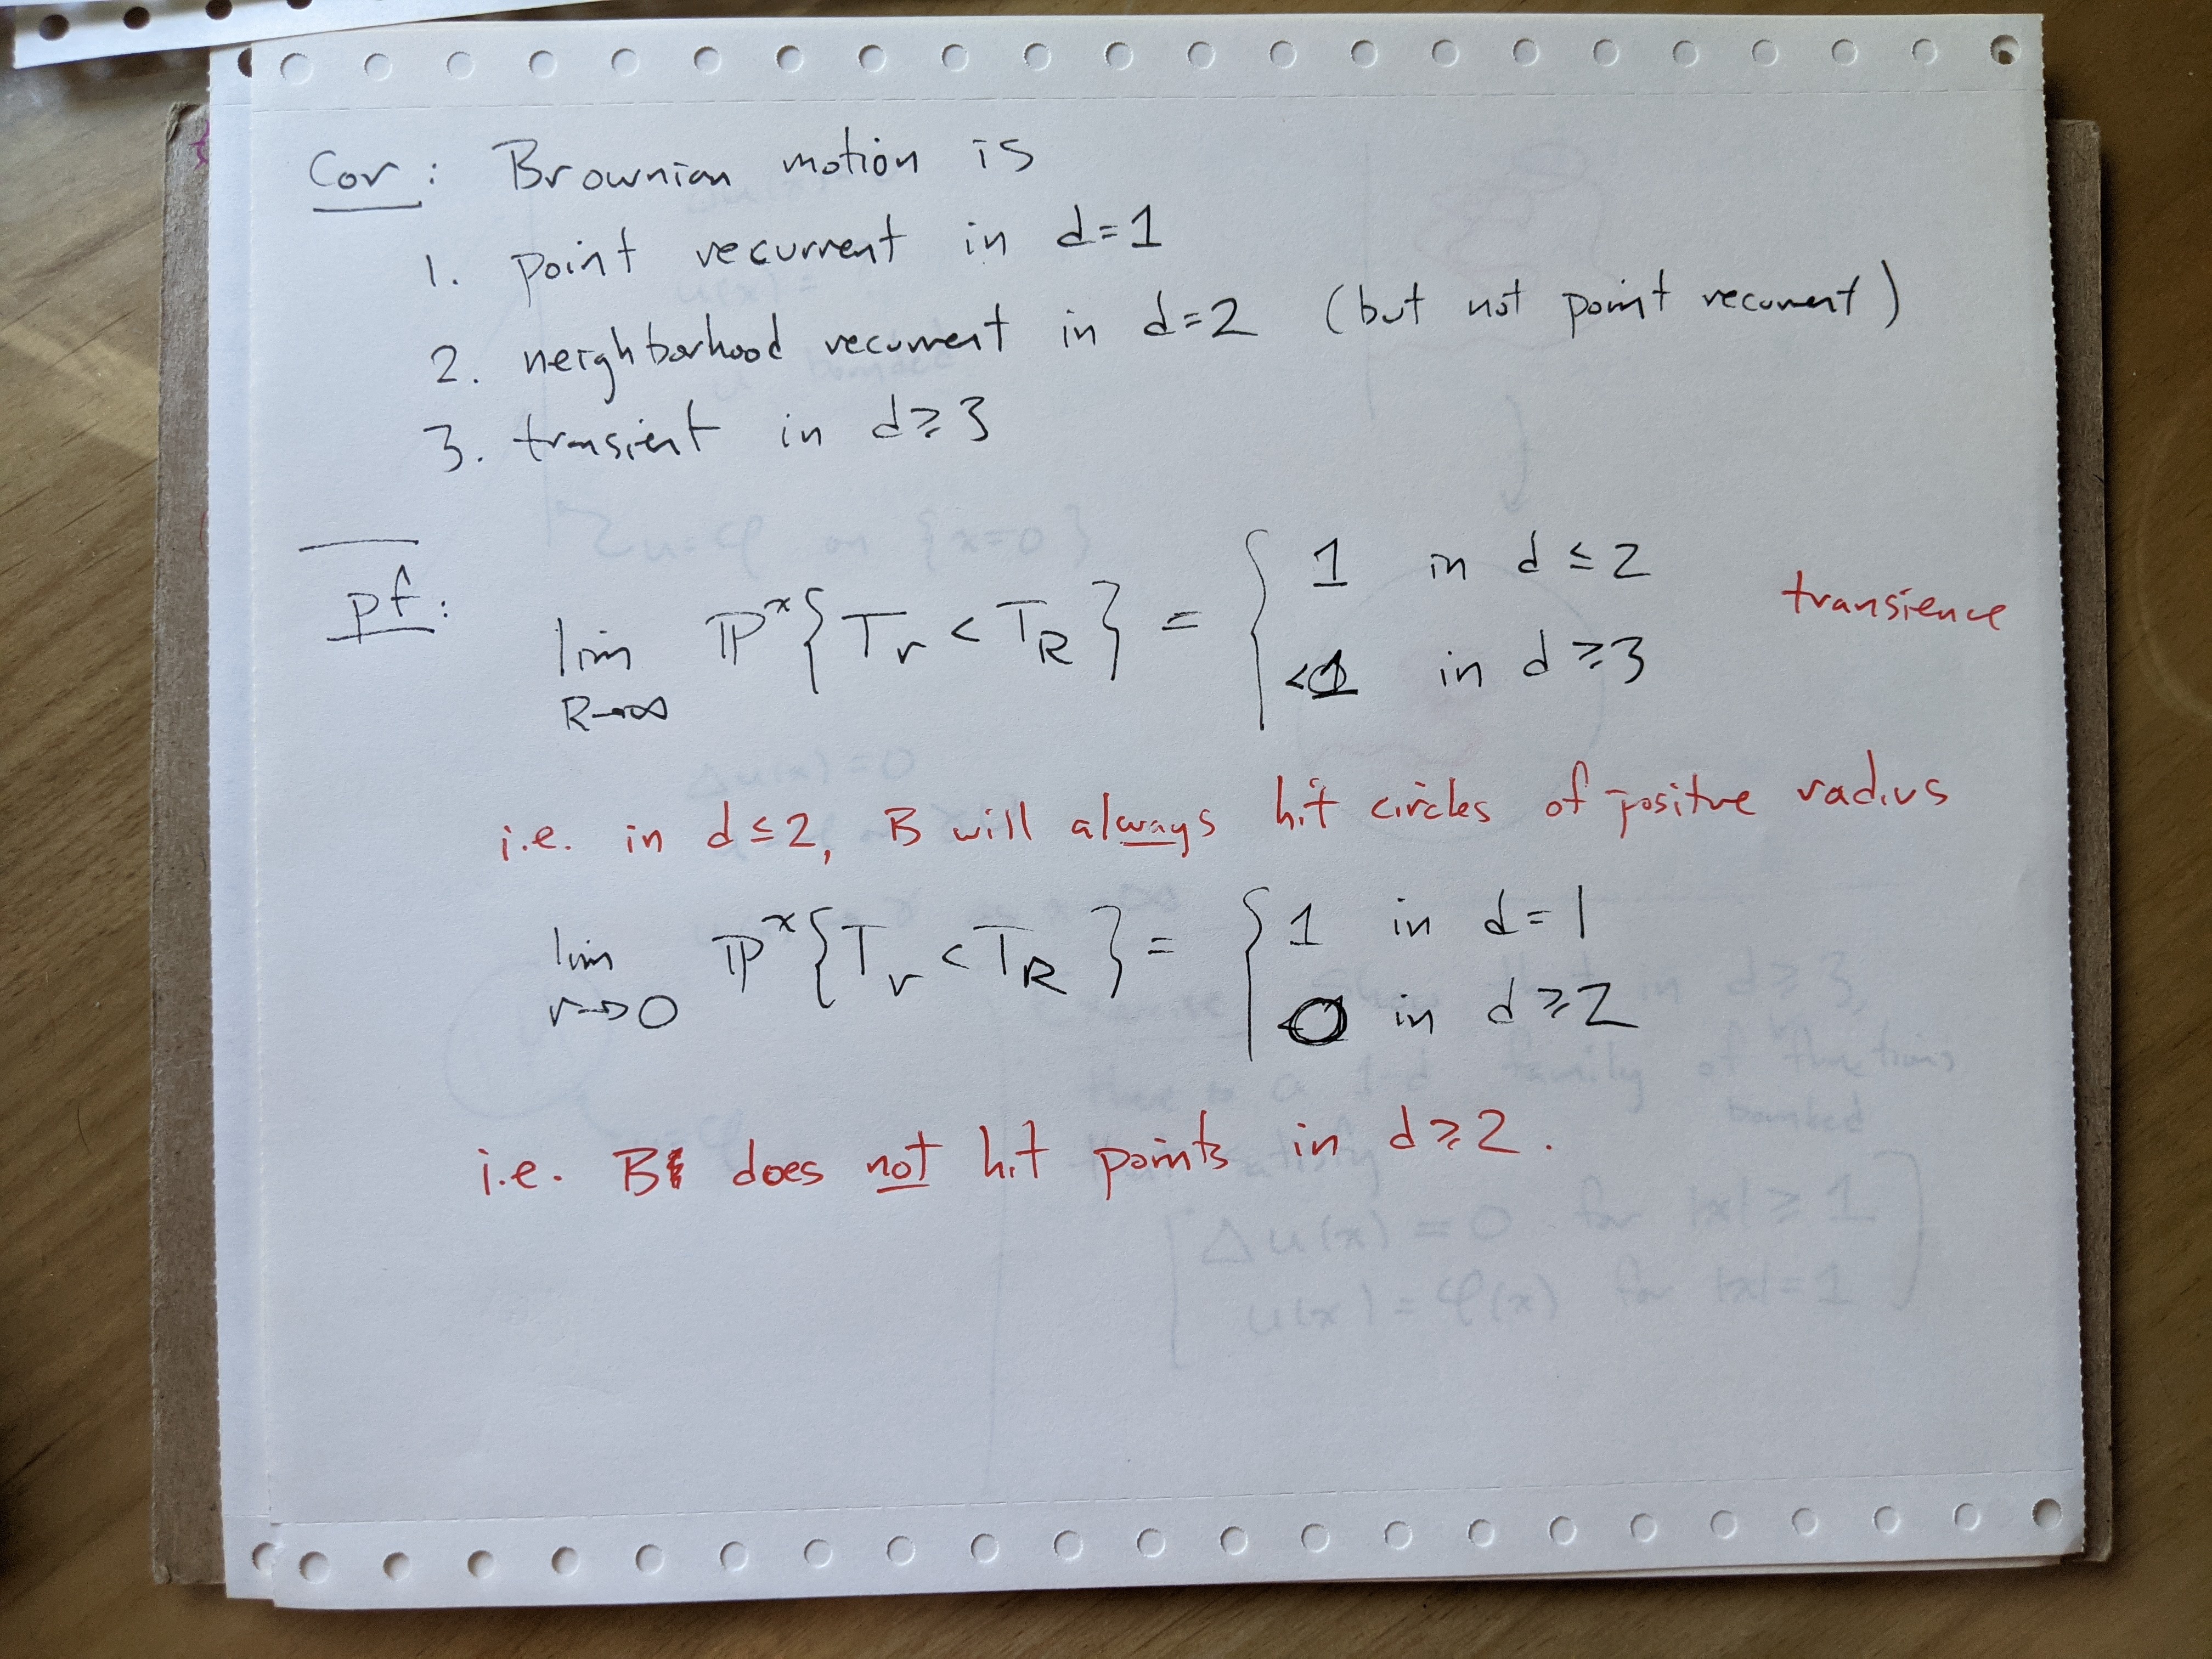 Cor: Brownian motion is
1. point recurrent in d=1
2. neighborhood recurrent in d=2 (but not point recurrent)
3. transient in d≥3
pf: lim R→∞ ℙˣ{T_r < T_R} = { 1 in d≤2
<1 in d≥3
transience
i.e. in d≤2, B will always hit circles of positive radius
lim r→0 ℙˣ{T_r < T_R} = { 1 in d=1
0 in d≥2
i.e. B does not hit points in d≥2.
Δu(x)=0 for |x|≥1
u(x)=φ(x) for |x|=1